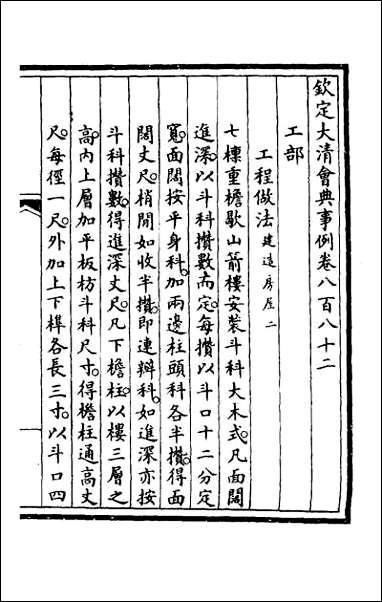 欽定大清會典事例卷八百八十二
工部
工程做法建造房屋二
七檁重檐歇山箭樓安裝斗科大木式。凡面闊
進深。以斗科攢數而定。每攢以斗口十二分定
寬。面闊按平身科。加兩邊柱頭科各半攢。得面
闊丈尺。梢間如收半攢。即連瓣科。如進深亦按
斗科攢數。得進深丈尺。凡下檐柱。以樓三層之
高。內上層加平板枋斗科尺寸。得檐柱通高丈
尺。每徑一尺。外加上下榫各長三寸。以斗口四